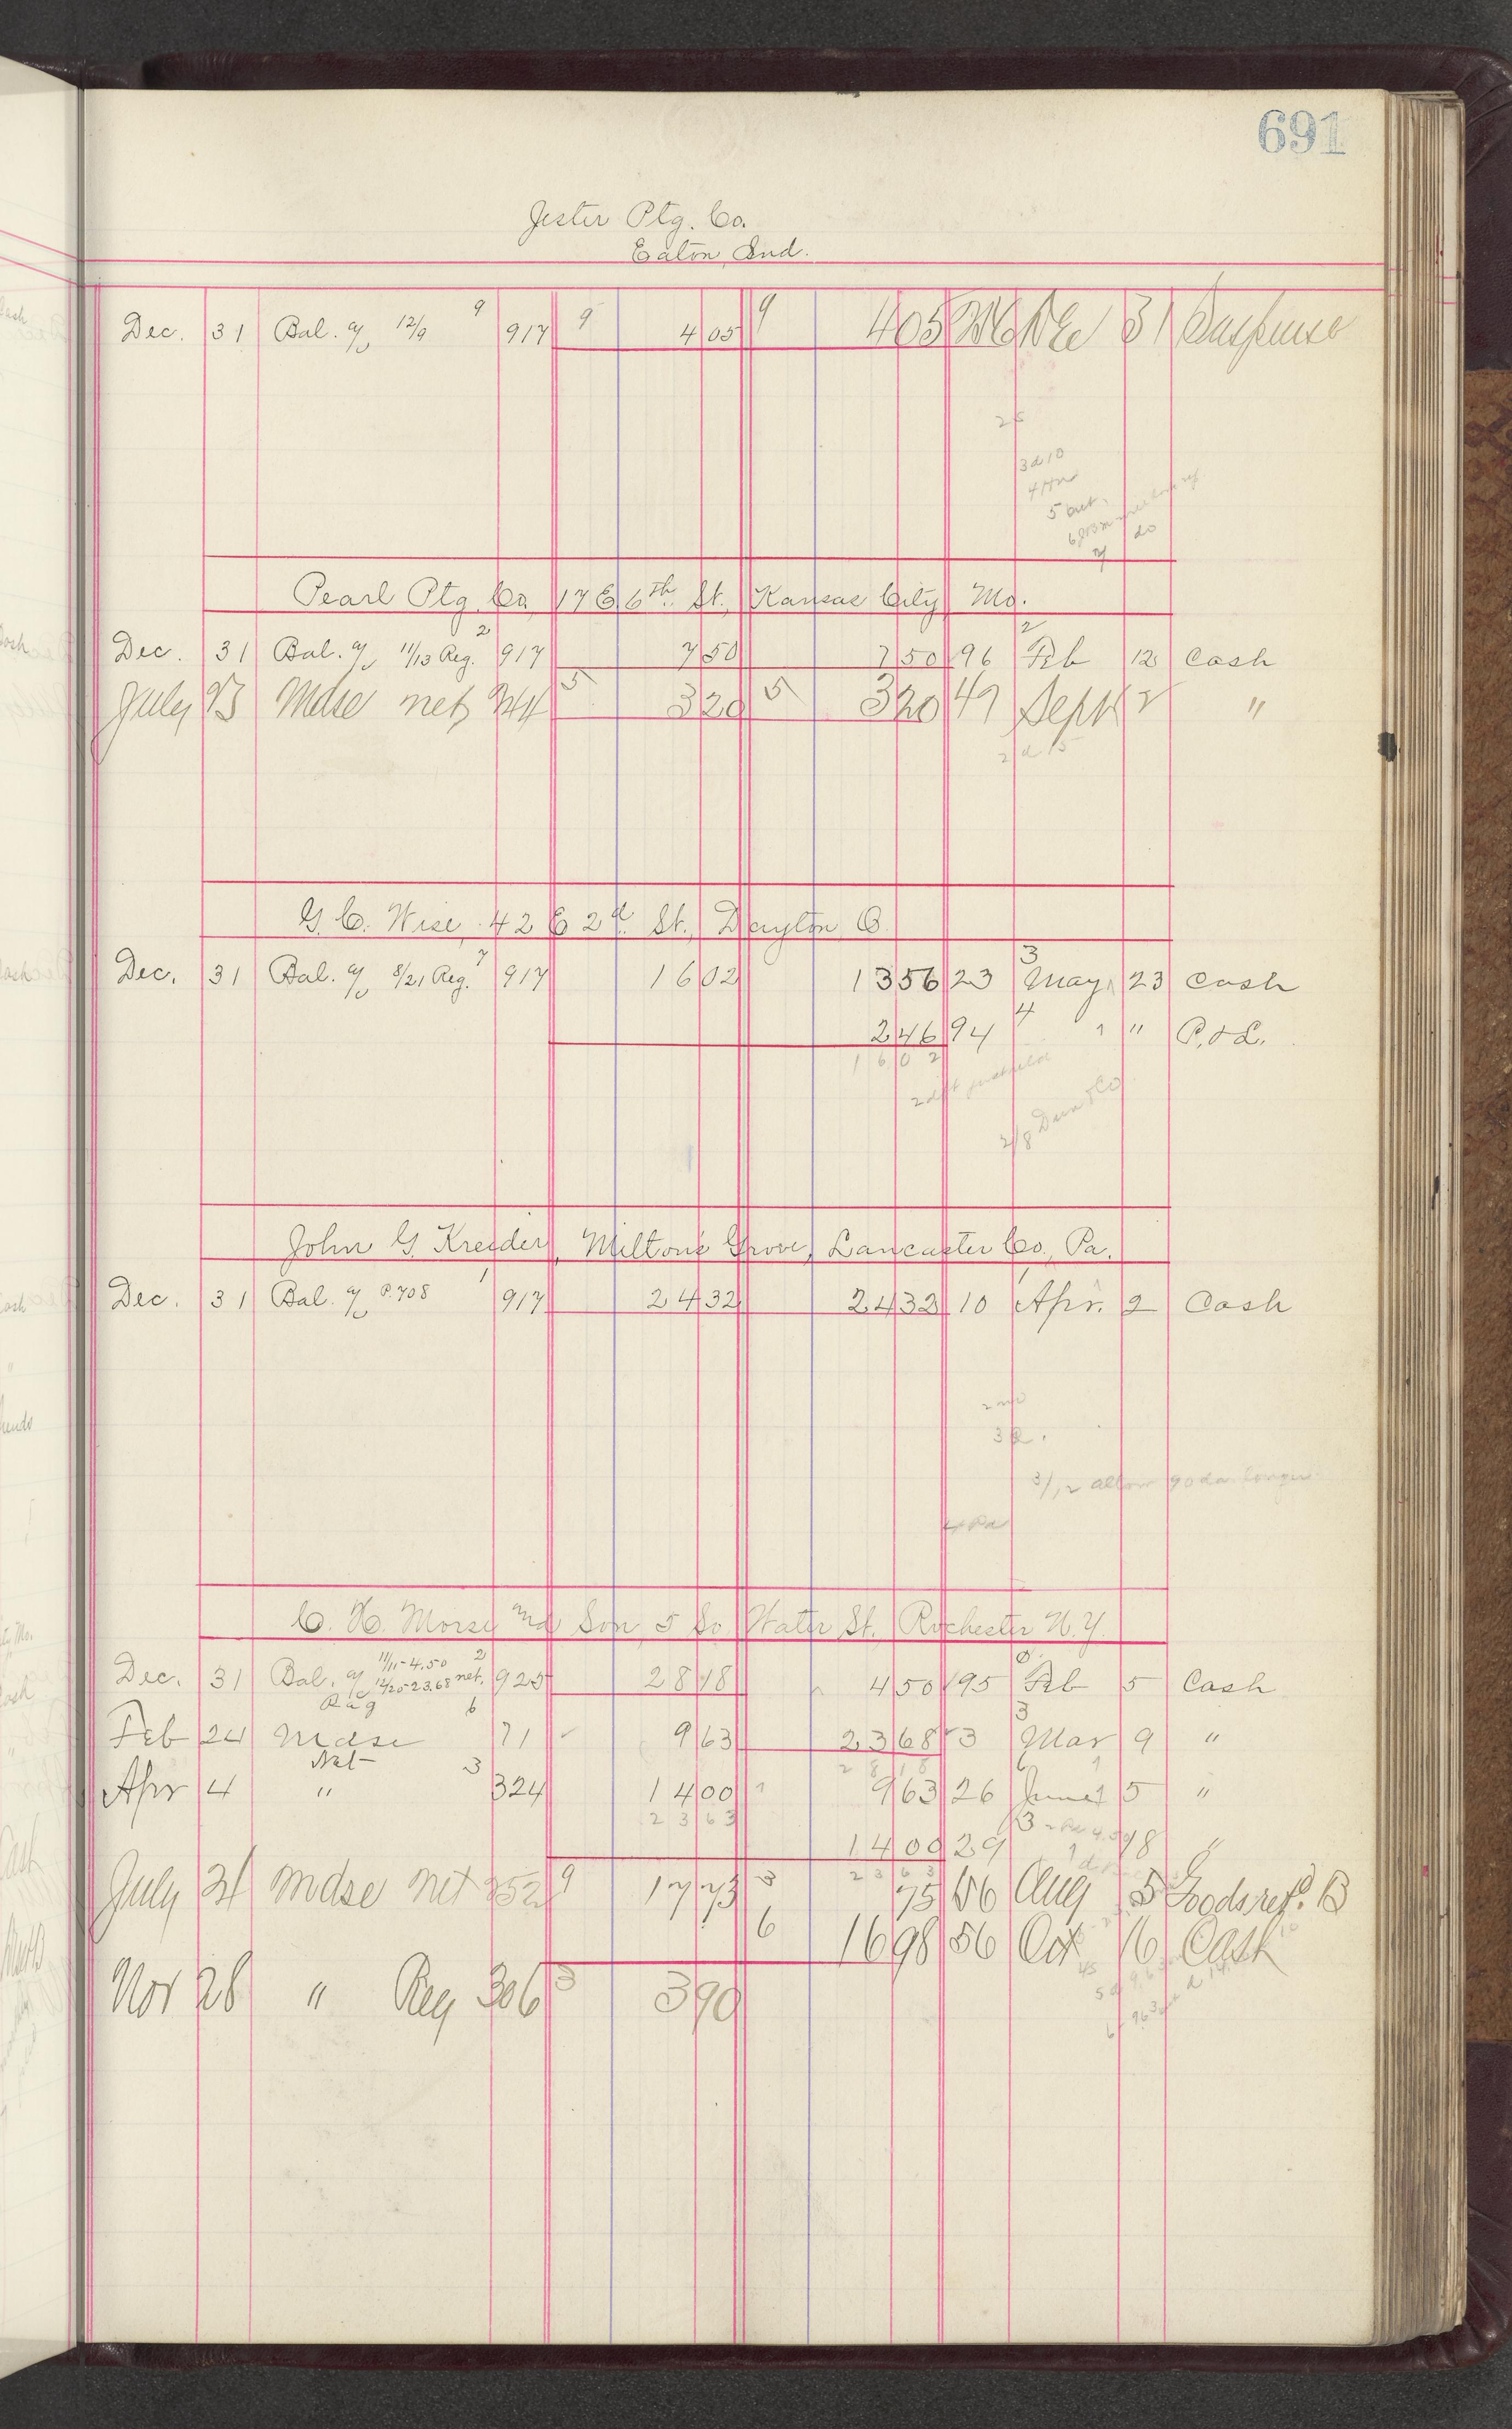 691
Jester Ptg. Co.
Eaton, Ind.
Dec. 31 Bal. a/c 12/9 9 917 9 4 05 9 405 Dec 31 Suspense
26
3d10
20
Pearl Ptg. Co. 17 E 6th St., Kansas City, Mo.
Dec. 31 Bal. a/c 11/13 Reg. 2 917 7 50 7 50 96 2 Feb 12 Cash
July 23 Mdse net 244 5 3 20 5 3 20 47 Sept 2 "
2 d 15
G. C. Wise, 42 E 2d. St., Dayton, O.
Dec. 31 Bal. a/c 8/21 Reg. 7 917 16 02 13 56 23 3 May 23 Cash
2 46 94 4 " " P. & L.
1 6 0 2
2/8 Dun & Co
John G. Kreider, Milton's Grove, Lancaster Co., Pa.
Dec. 31 Bal. a/c P. 708 1 917 24 32 24 32 10 Apr. 2 Cash
3/12 allow 90 da longer
C. H. Morse and Son, 5 So. Water St., Rochester N.Y.
Dec. 31 Bal. a/c 11/11-4.50 12/20-23.68 net. 2 925 28 18 4 50 195 Feb 5 Cash
Reg 6
Feb 24 Mdse 71 9 63 23 68 3 3 Mar 9 "
Net 3 2 8 1 8
Apr 4 " 324 14 00 9 63 26 June 5 "
2 3 6 3
14 00 29 18 "
2 3 6 3
July 21 Mdse Net 252 9 17 73 3 75 56 Aug 5 Goods ret'd. B
6 16 98 56 Oct 16 Cash
Nov 28 " Reg 306 3 3 90